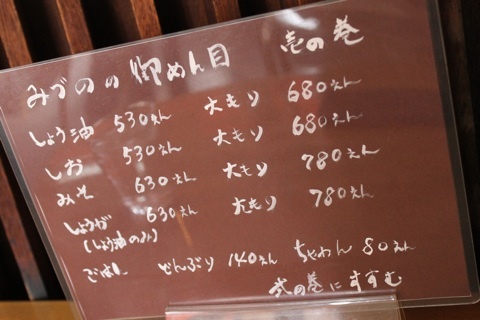 みづのの御めん目 壱の巻
しょう油 530えん 大もり 680えん
しお 530えん 大もり 680えん
みそ 630えん 大もり 780えん
しょうが 630えん 大もり 780えん
(しょう油のみ)
ごはん どんぶり 140えん ちゃわん 80えん
弐の巻にすすむ